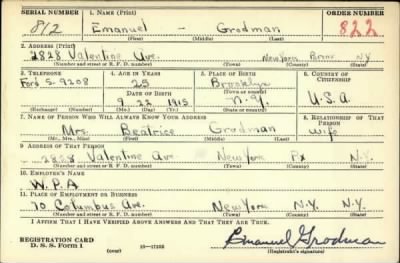 SERIAL NUMBER 1. NAME (Print) ORDER NUMBER
812 Emanuel - Grodman 822
(First) (Middle) (Last)
2. ADDRESS (Print)
2828 Valentine Ave. New York Bronx N.Y.
(Number and street or R. F. D. number) (Town) (County) (State)
3. TELEPHONE 4. AGE IN YEARS 5. PLACE OF BIRTH 6. COUNTRY OF CITIZENSHIP
Ford 5. 9208 25 Brooklyn
DATE OF BIRTH (Town or county)
9. 22 1915 N.Y. U.S.A.
(Exchange) (Number) (Mo.) (Day) (Yr.) (State or country)
7. NAME OF PERSON WHO WILL ALWAYS KNOW YOUR ADDRESS 8. RELATIONSHIP OF THAT PERSON
Mrs. Beatrice Grodman Wife
(Mr., Mrs., Miss) (First) (Middle) (Last)
9 ADDRESS OF THAT PERSON
2828 Valentine Ave New York Bx N.Y.
(Number and street or R. F. D. number) (Town) (County) (State)
10. EMPLOYER'S NAME
W.P.A
11. PLACE OF EMPLOYMENT OR BUSINESS
70 Columbus Ave. New York N.Y. N.Y.
(Number and street or R. F. D. number) (Town) (County) (State)
I AFFIRM THAT I HAVE VERIFIED ABOVE ANSWERS AND THAT THEY ARE TRUE.
REGISTRATION CARD
D. S. S. Form 1 (over) Emanuel Grodman
(Registrant's signature)